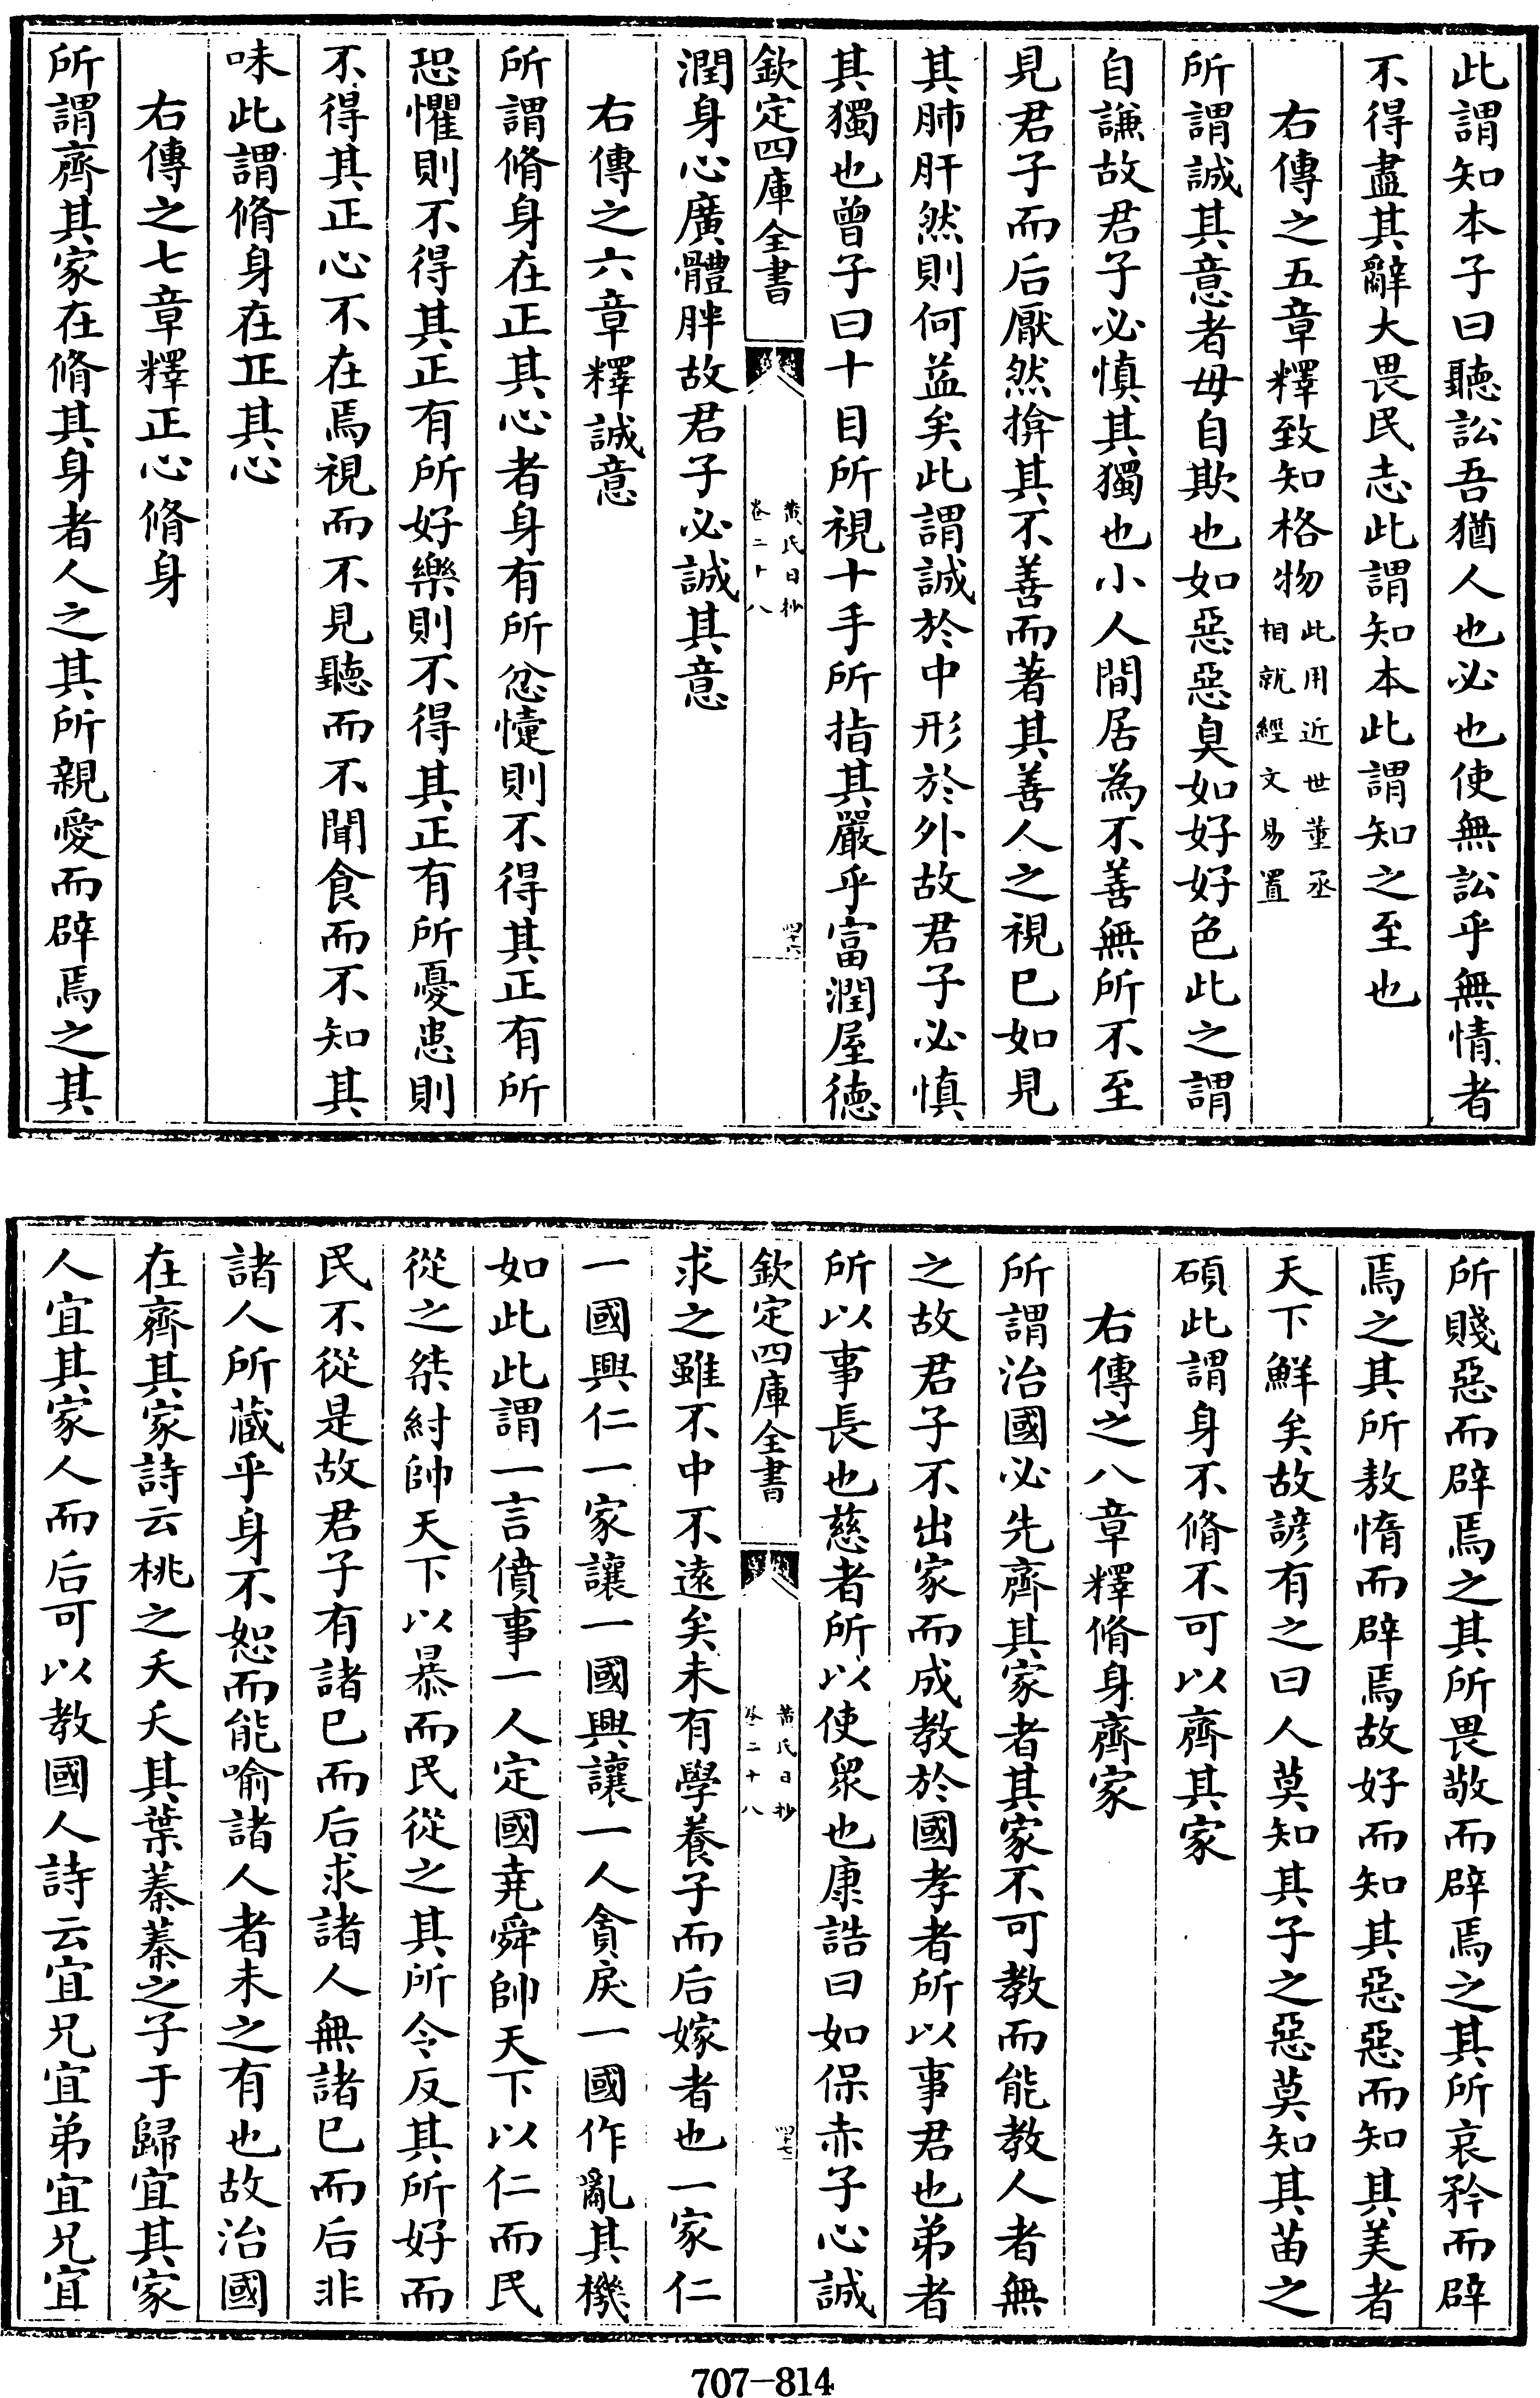 此謂知本子曰聽訟吾猶人也必也使無訟乎無情者
不得盡其辭大畏民志此謂知本此謂知之至也
右傳之五章釋致知格物此用近世董丞
相就經文易置
所謂誠其意者毋自欺也如惡惡臭如好好色此之謂
自謙故君子必慎其獨也小人閒居為不善無所不至
見君子而后厭然揜其不善而著其善人之視已如見
其肺肝然則何益矣此謂誠於中形於外故君子必慎
其獨也曾子曰十目所視十手所指其嚴乎富潤屋徳
欽定四庫全書
黄氏日抄
卷二十八
四十六
潤身心廣體胖故君子必誠其意
右傳之六章釋誠意
所謂脩身在正其心者身有所忿懥則不得其正有所
恐懼則不得其正有所好樂則不得其正有所憂患則
不得其正心不在焉視而不見聽而不聞食而不知其
味此謂脩身在正其心
右傳之七章釋正心脩身
所謂齊其家在脩其身者人之其所親愛而辟焉之其
所賤惡而辟焉之其所畏敬而辟焉之其所哀矜而辟
焉之其所敖惰而辟焉故好而知其惡惡而知其美者
天下鮮矣故諺有之曰人莫知其子之惡莫知其苗之
碩此謂身不脩不可以齊其家
右傳之八章釋脩身齊家
所謂治國必先齊其家者其家不可教而能教人者無
之故君子不出家而成教於國孝者所以事君也弟者
所以事長也慈者所以使衆也康誥曰如保赤子心誠
欽定四庫全書
黄氏日抄
卷二十八
四十七
求之雖不中不遠矣未有學養子而后嫁者也一家仁
一國興仁一家讓一國興讓一人貪戾一國作亂其機
如此此謂一言僨事一人定國堯舜帥天下以仁而民
從之桀紂帥天下以暴而民從之其所令反其所好而
民不從是故君子有諸已而后求諸人無諸已而后非
諸人所藏乎身不恕而能喻諸人者未之有也故治國
在齊其家詩云桃之夭夭其葉蓁蓁之子于歸宜其家
人宜其家人而后可以教國人詩云宜兄宜弟宜兄宜
707-814